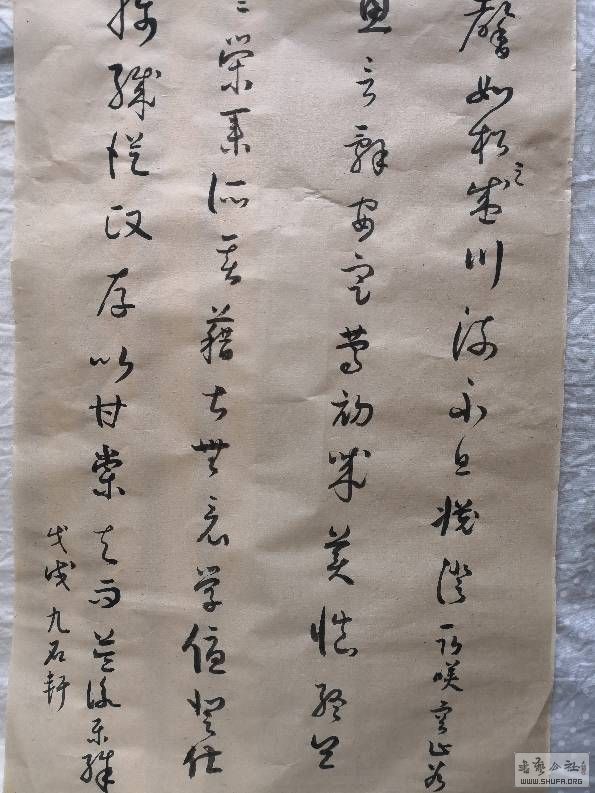 馨如松之盛川流不息渊澄取映容止若
思言辞安定笃初诚美慎终宜
令荣业所基籍甚无竟学优登仕
摄职从政存以甘棠去而益咏乐殊
戊戌九石轩
书艺公社
WWW.SHUFA.ORG